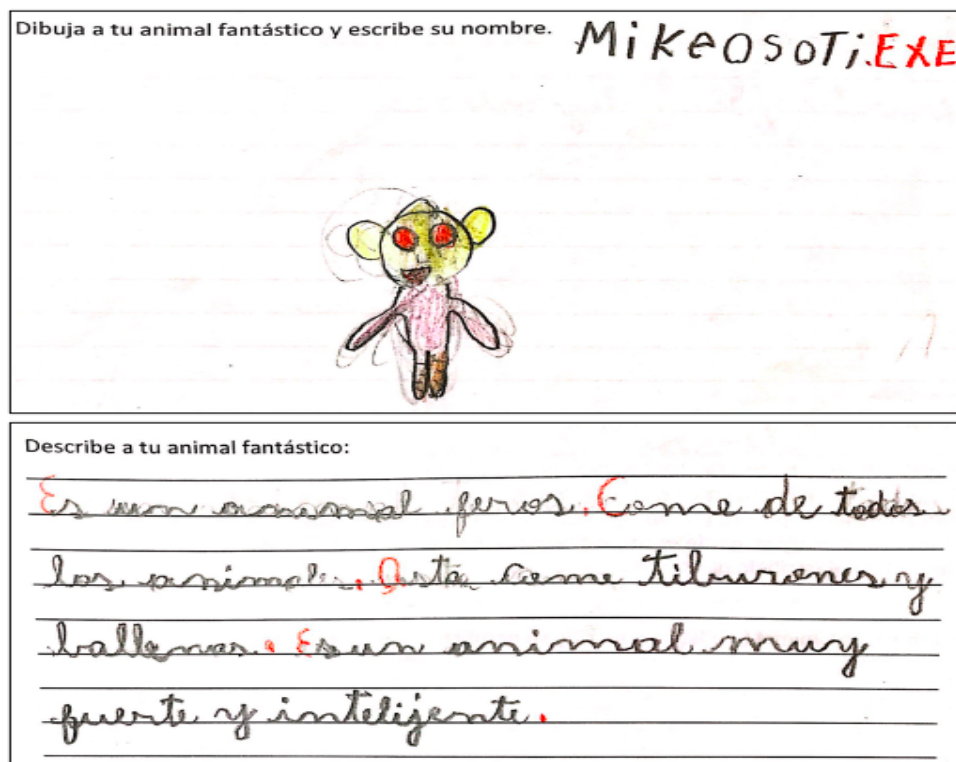 Dibuja a tu animal fantástico y escribe su nombre.
MiKeOSoTi.EXE
Describe a tu animal fantástico:
Es un animal feros. Come de todos
los animales. Asta come tiburones y
ballenas. Es un animal muy
fuerte y intelijente.